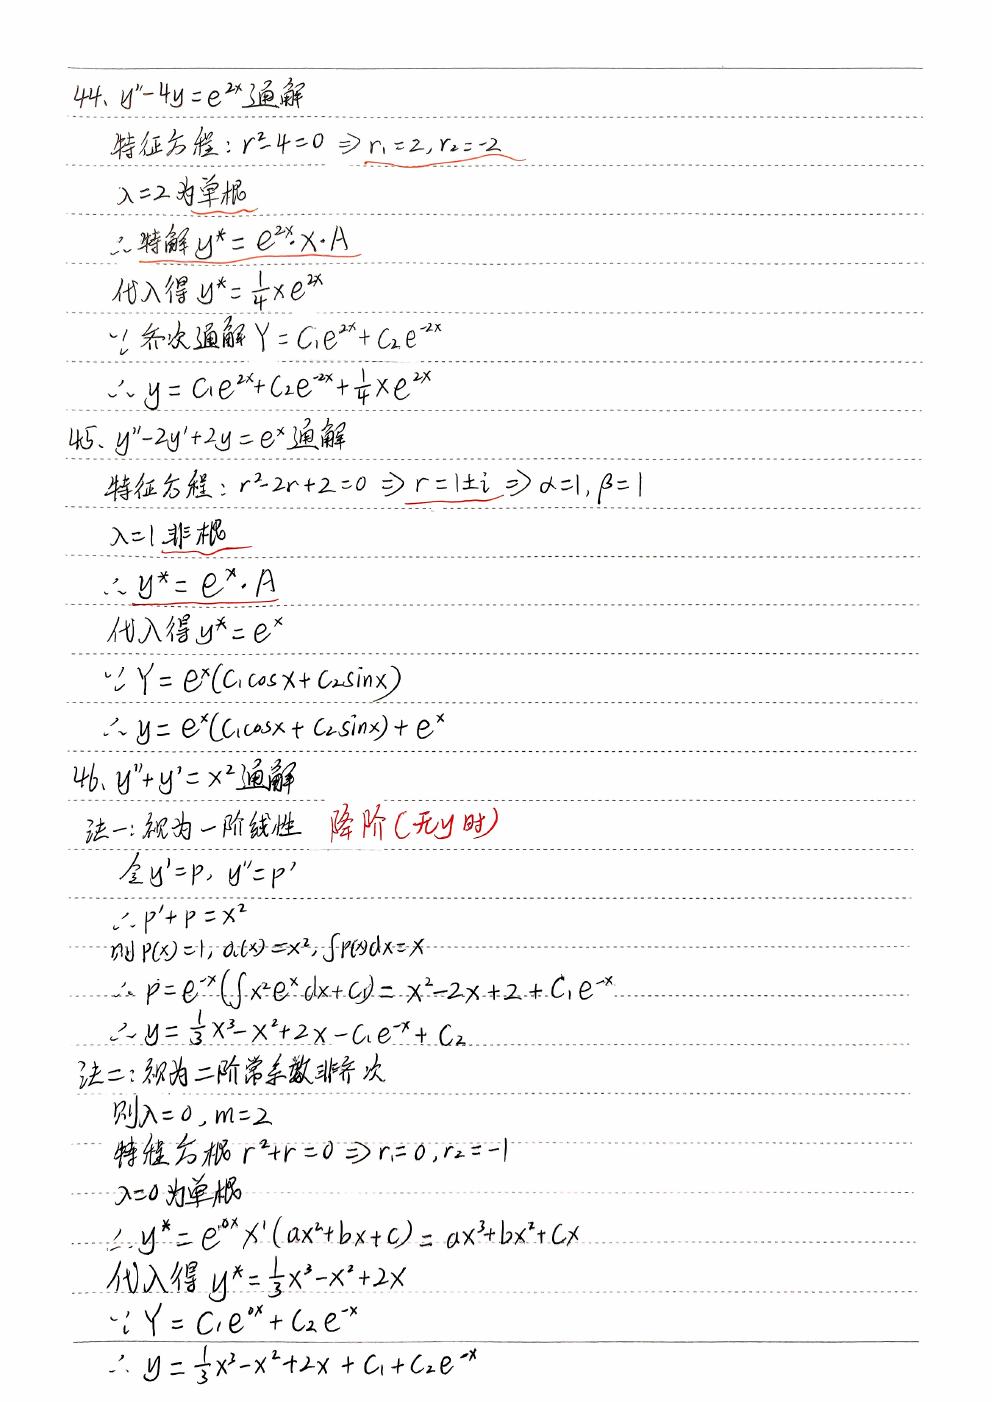 44、y''-4y=e^{2x}通解
特征方程：r²-4=0 ⇒ r₁=2, r₂=-2
λ=2为单根
∴特解y*=e^{2x}·x·A
代入得y*=\frac{1}{4}xe^{2x}
∵齐次通解Y=C₁e^{2x}+C₂e^{-2x}
∴y=C₁e^{2x}+C₂e^{-2x}+\frac{1}{4}xe^{2x}
45、y''-2y'+2y=e^x通解
特征方程：r²-2r+2=0 ⇒ r=1±i ⇒ α=1, β=1
λ=1非根
∴y*=e^x·A
代入得y*=e^x
∵Y=e^x(C₁cosx+C₂sinx)
∴y=e^x(C₁cosx+C₂sinx)+e^x
46、y''+y'=x²通解
法一：视为一阶线性 降阶(无y时)
令y'=p, y''=p'
∴p'+p=x²
则P(x)=1, Q(x)=x², ∫P(x)dx=x
∴p=e^{-x}(∫x²e^xdx+C₁)=x²-2x+2+C₁e^{-x}
∴y=\frac{1}{3}x³-x²+2x-C₁e^{-x}+C₂
法二：视为二阶常系数非齐次
则λ=0, m=2
特征方根r²+r=0 ⇒ r₁=0, r₂=-1
λ=0为单根
∴y*=e^{0x}x¹(ax²+bx+c)=ax³+bx²+cx
代入得y*=\frac{1}{3}x³-x²+2x
∵Y=C₁e^{0x}+C₂e^{-x}
∴y=\frac{1}{3}x³-x²+2x+C₁+C₂e^{-x}